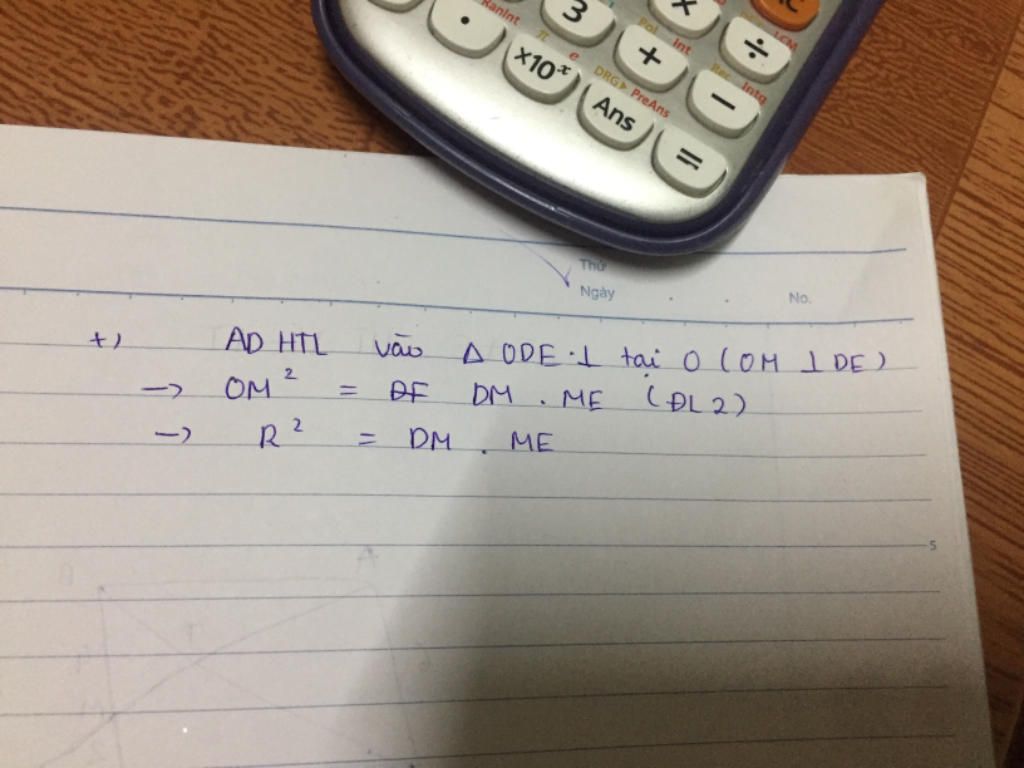 3
×
÷
AC
RanInt
π
e
Pol
Int
LCM
·
×10ˣ
+
−
DRG▸
PreAns
Rec
Intg
Ans
=
Thứ
Ngày
No.
+) AD HTL vào Δ ODE ⊥ tại O (OM ⊥ DE)
→ OM² = DM . ME (ĐL2)
→ R² = DM . ME
5
A